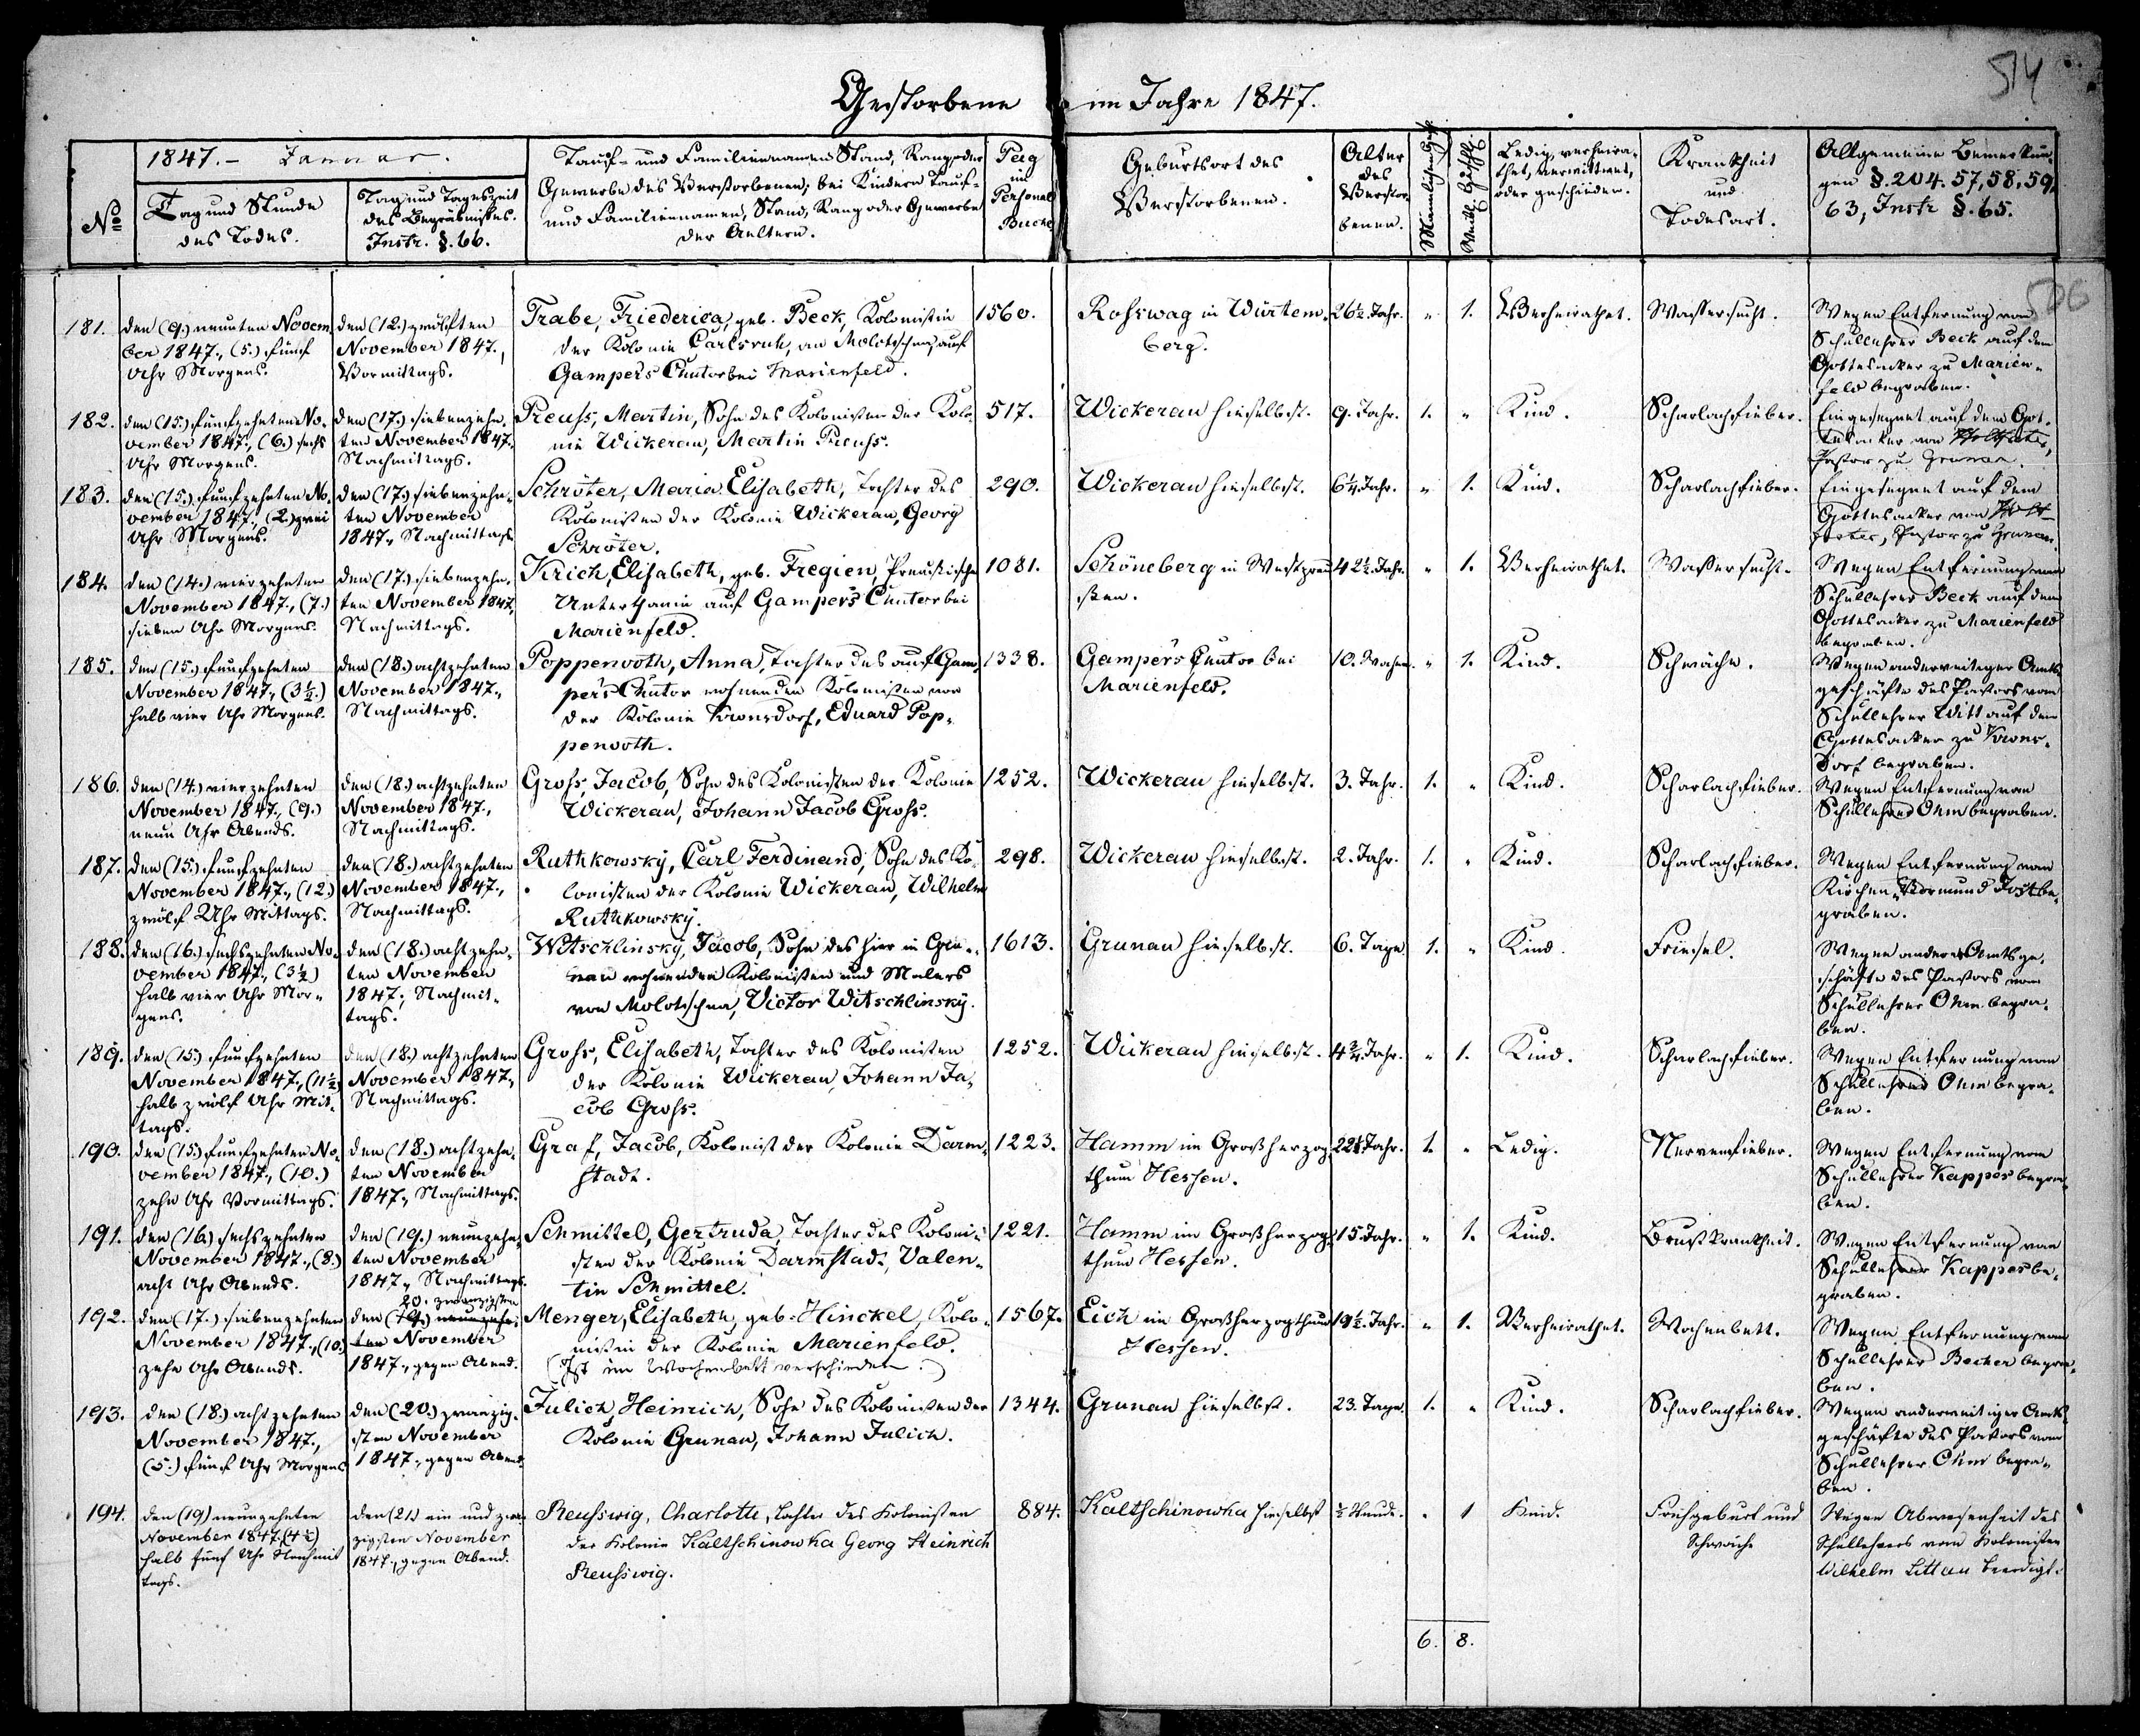 514
Gestorbene im Jahre 1847.
506
№
1847. - Januar.
Tag und Stunde
des Todes.
Tag und Tageszeit
des Begräbnisses.
Instr. §. 66.
Tauf- und Familiennamen, Stand, Rang oder
Gewerbe des Verstorbenen; bei Kindern Tauf-
und Familiennamen, Stand, Rang oder Gewerbe
der Aeltern.
Pag
im
Personal
Buche
Geburtsort des
Verstorbenen.
Alter
des
Verstor-
benen.
Männlichen Gesch.
Weibl. Geschl.
Ledig, verheira-
thet, verwittwet,
oder geschieden.
Krankheit
und
Todesart.
Allgemeine Bemerkun-
gen §. 204. 57, 58, 59,
63, Instr §. 65.
181.
den (9.) neunten Novem-
ber 1847., (5.) fünf
Uhr Morgens.
den (12.) zwölften
November 1847.,
Vormittags.
Trabe, Friederica, geb. Beck, Kolonistin
der Kolonie Carlsruh, an Molotschna, auf
Gampers Chutor bei Marienfeld.
1560.
Rohswag in Würtem-
berg.
26½. Jahr.
" 1.
Verheirathet.
Wassersucht.
Wegen Entfernung vom
Schullehrer Beck auf dem
Gottesacker zu Marien-
feld begraben.
182.
den (15.) funfzehnten No-
vember 1847., (6.) sechs
Uhr Morgens.
den (17.) siebenzehn-
ten November 1847.,
Nachmittags.
Preuss, Martin, Sohn des Kolonisten der Kolo-
nie Wickerau, Martin Preuss.
517.
Wickerau hieselbst.
9. Jahr.
1. "
Kind.
Scharlachfieber.
Eingesegnet auf dem Got-
tesacker von
Pastor zu Grunau.
183.
den (15.) funfzehnten No-
vember 1847., (2.) zwei
Uhr Morgens.
den (17.) siebenzehn-
ten November
1847., Nachmittags
Schröter, Maria Elisabeth, Tochter des
Kolonisten der Kolonie Wickerau, Georg
Schröter.
290.
Wickerau hieselbst.
6¼. Jahr.
" 1.
Kind.
Scharlachfieber.
Eingesegnet auf dem
Gottesacker von
Pastor zu Grunau.
184.
den (14.) vierzehnten
November 1847., (7.)
sieben Uhr Morgens.
den (17.) siebenzehn-
ten November 1847.,
Nachmittags.
Kirich, Elisabeth, geb. Fregien, Preussische
Unterthanin auf Gampers Chutor bei
Marienfeld.
1081.
Schöneberg in Westpreu-
ssen.
42½. Jahr.
" 1.
Verheirathet.
Wassersucht.
Wegen Entfernung vom
Schullehrer Beck auf dem
Gottesacker zu Marienfeld
begraben.
185.
den (15.) funfzehnten
November 1847., (3½.)
halb vier Uhr Morgens.
den (18.) achtzehnten
November 1847.,
Nachmittags.
Poppenroth, Anna, Tochter des auf Gam-
pers Chutor wohnenden Kolonisten von
der Kolonie Kronsdorf, Eduard Pop-
penroth.
1338.
Gampers Chutor bei
Marienfeld.
10. Wochen.
" 1.
Kind.
Schwäche.
Wegen anderweitiger Amts-
geschäfte des Pastors vom
Schullehrer Witt auf dem
Gottesacker zu Krons-
dorf begraben.
186.
den (14.) vierzehnten
November 1847., (9.)
neun Uhr Abends.
den (18.) achtzehnten
November 1847.,
Nachmittags.
Gross, Jacob, Sohn des Kolonisten der Kolonie
Wickerau, Johann Jacob Gross.
1252.
Wickerau hieselbst.
3. Jahr.
1. "
Kind.
Scharlachfieber.
Wegen Entfernung vom
Schullehrer Ohm begraben.
187.
den (15.) funfzehnten
November 1847., (12.)
zwölf Uhr Mittags.
den (18.) achtzehnten
November 1847.,
Nachmittags.
Ruthkowsky, Carl Ferdinand, Sohn des Ko-
lonisten der Kolonie Wickerau, Wilhelm
Ruthkowsky.
298.
Wickerau hieselbst.
2. Jahr.
1. "
Kind.
Scharlachfieber.
Wegen Entfernung vom
Kirchen-Vormund Jost be-
graben.
188.
den (16.) sechszehnten No-
vember 1847., (3½)
halb vier Uhr Mor-
gens.
den (18.) achtzehn-
ten November
1847., Nachmit-
tags.
Witschlinsky, Jacob, Sohn des hier in Gru-
nau wohnenden Kolonisten und Malers
von Molotschna, Victor Witschlinsky.
1613.
Grunau hieselbst.
6. Tage.
1. "
Kind.
Friesel.
Wegen anderer Amtsge-
schäfte des Pastors vom
Schullehrer Ohm begra-
ben.
189.
den (15.) funfzehnten
November 1847., (11½)
halb zwölf Uhr Mit-
tags.
den (18.) achtzehnten
November 1847.,
Nachmittags.
Gross, Elisabeth, Tochter des Kolonisten
der Kolonie Wickerau, Johann Ja-
cob Gross.
1252.
Wickerau hieselbst.
4¾. Jahr.
" 1.
Kind.
Scharlachfieber.
Wegen Entfernung vom
Schullehrer Ohm begra-
ben.
190.
den (15.) funfzehnten No-
vember 1847., (10.)
zehn Uhr Vormittags.
den (18.) achtzehn-
ten November
1847., Nachmittags.
Graf, Jacob, Kolonist der Kolonie Darm-
stadt.
1223.
Hamm im Grossherzog-
thum Hessen.
Jahr.
1. "
Ledig.
Nervenfieber.
Wegen Entfernung vom
Schullehrer Kappes begra-
ben.
191.
den (16.) sechszehnten
November 1847., (8.)
acht Uhr Abends.
den (19.) neunzehn-
ten November
1847., Nachmittags.
Schmittel, Gertruda, Tochter des Koloni-
sten der Kolonie Darmstadt, Valen-
tin Schmittel.
1221.
Hamm im Grossherzog-
thum Hessen.
15. Jahr.
" 1.
Kind.
Brustkrankheit.
Wegen Entfernung vom
Schullehrer Kappes be-
graben.
192.
den (17.) siebenzehnten
November 1847., (10.)
zehn Uhr Abends.
20. zwanzigsten
den (19.) neunzehn-
ten November
1847., gegen Abend.
Menger, Elisabeth, geb. Hinckel, Kolo-
nistin der Kolonie Marienfeld.
(Ist im Wochenbett verschieden.)
1567.
Eich im Grossherzogthum
Hessen.
19½. Jahr.
" 1.
Verheirathet.
Wochenbett.
Wegen Entfernung vom
Schullehrer Becker begra-
ben.
193.
den (18.) achtzehnten
November 1847.,
(5.) fünf Uhr Morgens
den (20.) zwanzig-
sten November
1847., gegen Abend.
Julich, Heinrich, Sohn des Kolonisten der
Kolonie Grunau, Johann Julich.
1344.
Grunau hieselbst.
23. Tage.
1. "
Kind.
Scharlachfieber.
Wegen anderweitiger Amts-
geschäfte des Pastors vom
Schullehrer Ohm begra-
ben.
194.
den (19) neunzehnten
November 1847, (4½)
halb fünf Uhr Nachmit
tags.
den (21) ein und zwan
zigsten November
1847., gegen Abend.
Reusswig, Charlotte, Tochter des Kolonisten
der Kolonie Kaltschinowka Georg Heinrich
Reusswig.
884.
Kaltschinowka hieselbst
½ Stunde.
" 1
Kind.
Frühgeburt und
Schwäche
Wegen Abwesenheit des
Schullehrers vom Kolonisten
Wilhelm Littau beerdigt.
6. 8.